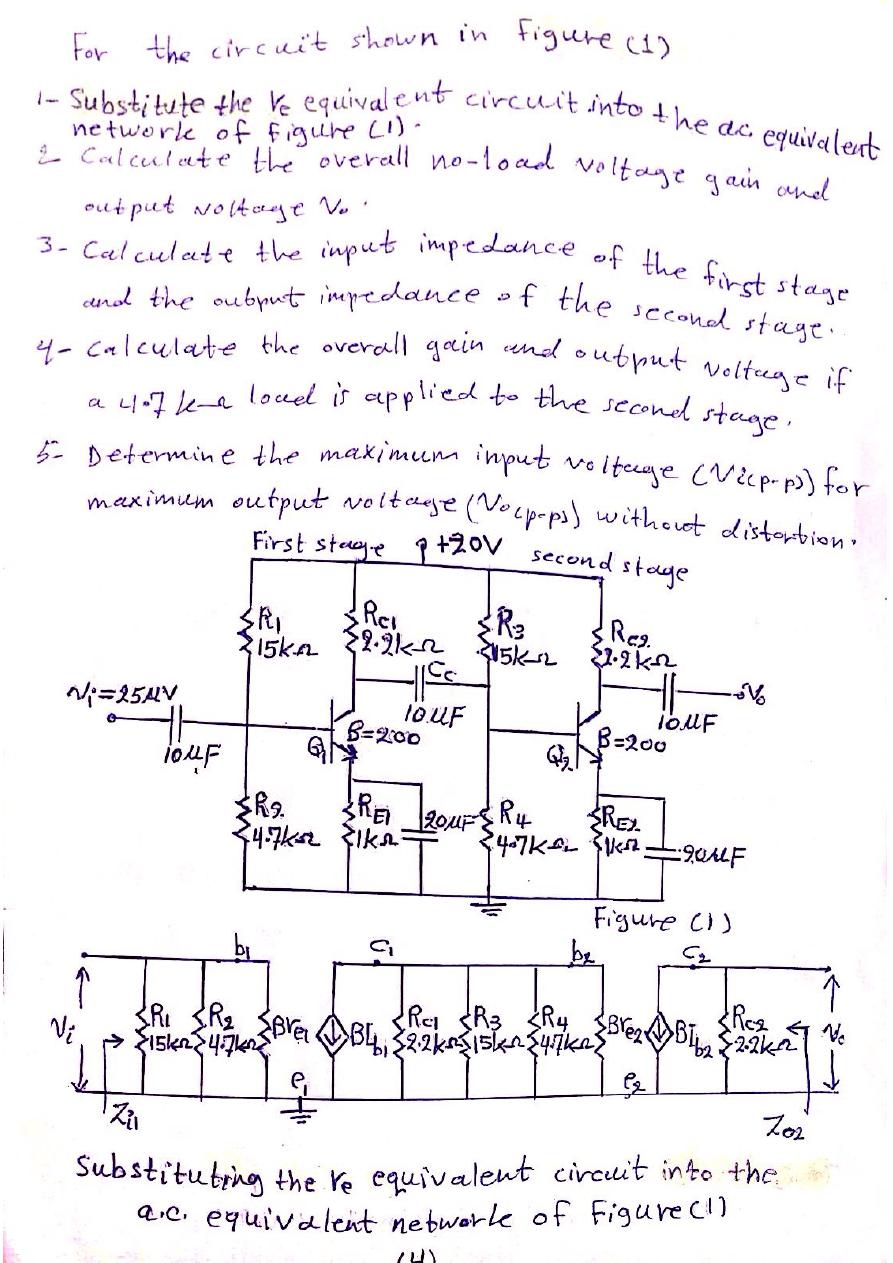 For the circuit shown in Figure (1)
1- Substitute the re equivalent circuit into the a.c. equivalent
network of Figure (1).
2- Calculate the overall no-load voltage gain and
output voltage Vo.
3- Calculate the input impedance of the first stage
and the output impedance of the second stage.
4- Calculate the overall gain and output voltage if
a 4.7 kΩ load is applied to the second stage.
5- Determine the maximum input voltage (Vi(p-p)) for
maximum output voltage (Vo(p-p)) without distortion.
First stage +20V second stage
R1 RC1 R3 RC2
15kΩ 2.2kΩ 15kΩ 2.2kΩ
Vi=25μV Cc Vo
10μF 10μF 10μF
Q1 β=200 Q2 β=200
R2 RE1 20μF R4 RE2
4.7kΩ 1kΩ 4.7kΩ 1kΩ 20μF
Figure (1)
b1 C1 b2 C2
Vi R1 R2 βre1 βIb1 RC1 R3 R4 βre2 βIb2 RC2 Vo
15kΩ 4.7kΩ 2.2kΩ 15kΩ 4.7kΩ 2.2kΩ
e1 e2
Zi1 Zo2
Substituting the re equivalent circuit into the
a.c. equivalent network of Figure (1)
(4)